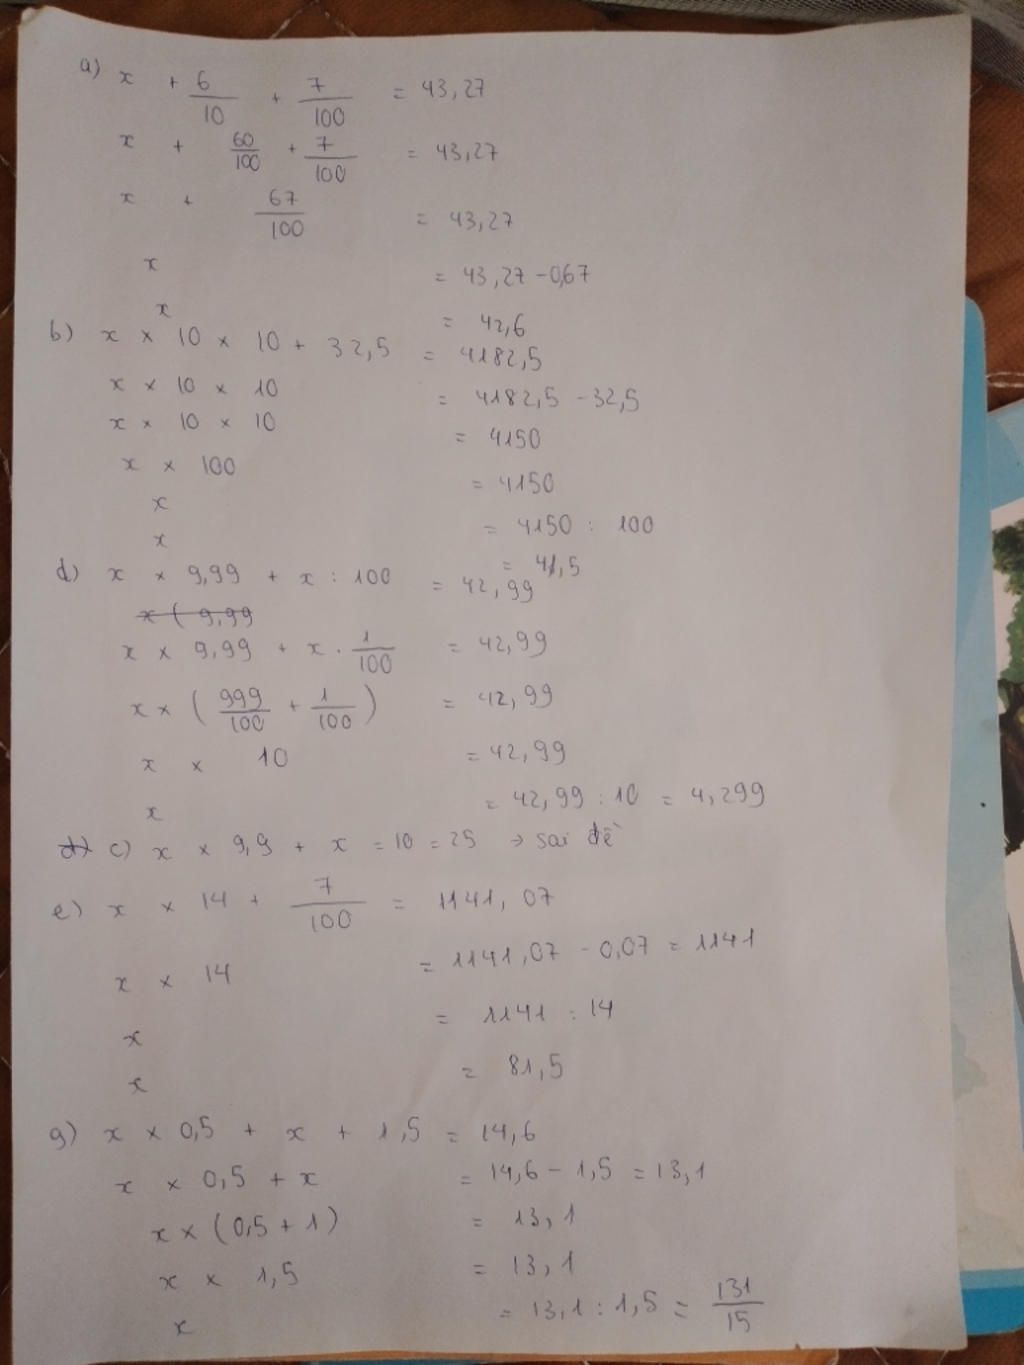 a) x + 6/10 + 7/100 = 43,27
x + 60/100 + 7/100 = 43,27
x + 67/100 = 43,27
x = 43,27 - 0,67
x = 42,6
b) x × 10 × 10 + 32,5 = 4182,5
x × 10 × 10 = 4182,5 - 32,5
x × 10 × 10 = 4150
x × 100 = 4150
x = 4150 : 100
x = 41,5
d) x × 9,99 + x : 100 = 42,99
x ( 9,99
x × 9,99 + x . 1/100 = 42,99
x × ( 999/100 + 1/100 ) = 42,99
x × 10 = 42,99
x = 42,99 : 10 = 4,299
d) c) x × 9,9 + x = 10 = 25 → sai đề
e) x × 14 + 7/100 = 1141,07
x × 14 = 1141,07 - 0,07 = 1141
x = 1141 : 14
x = 81,5
g) x × 0,5 + x + 1,5 = 14,6
x × 0,5 + x = 14,6 - 1,5 = 13,1
x × (0,5 + 1) = 13,1
x × 1,5 = 13,1
x = 13,1 : 1,5 = 131/15